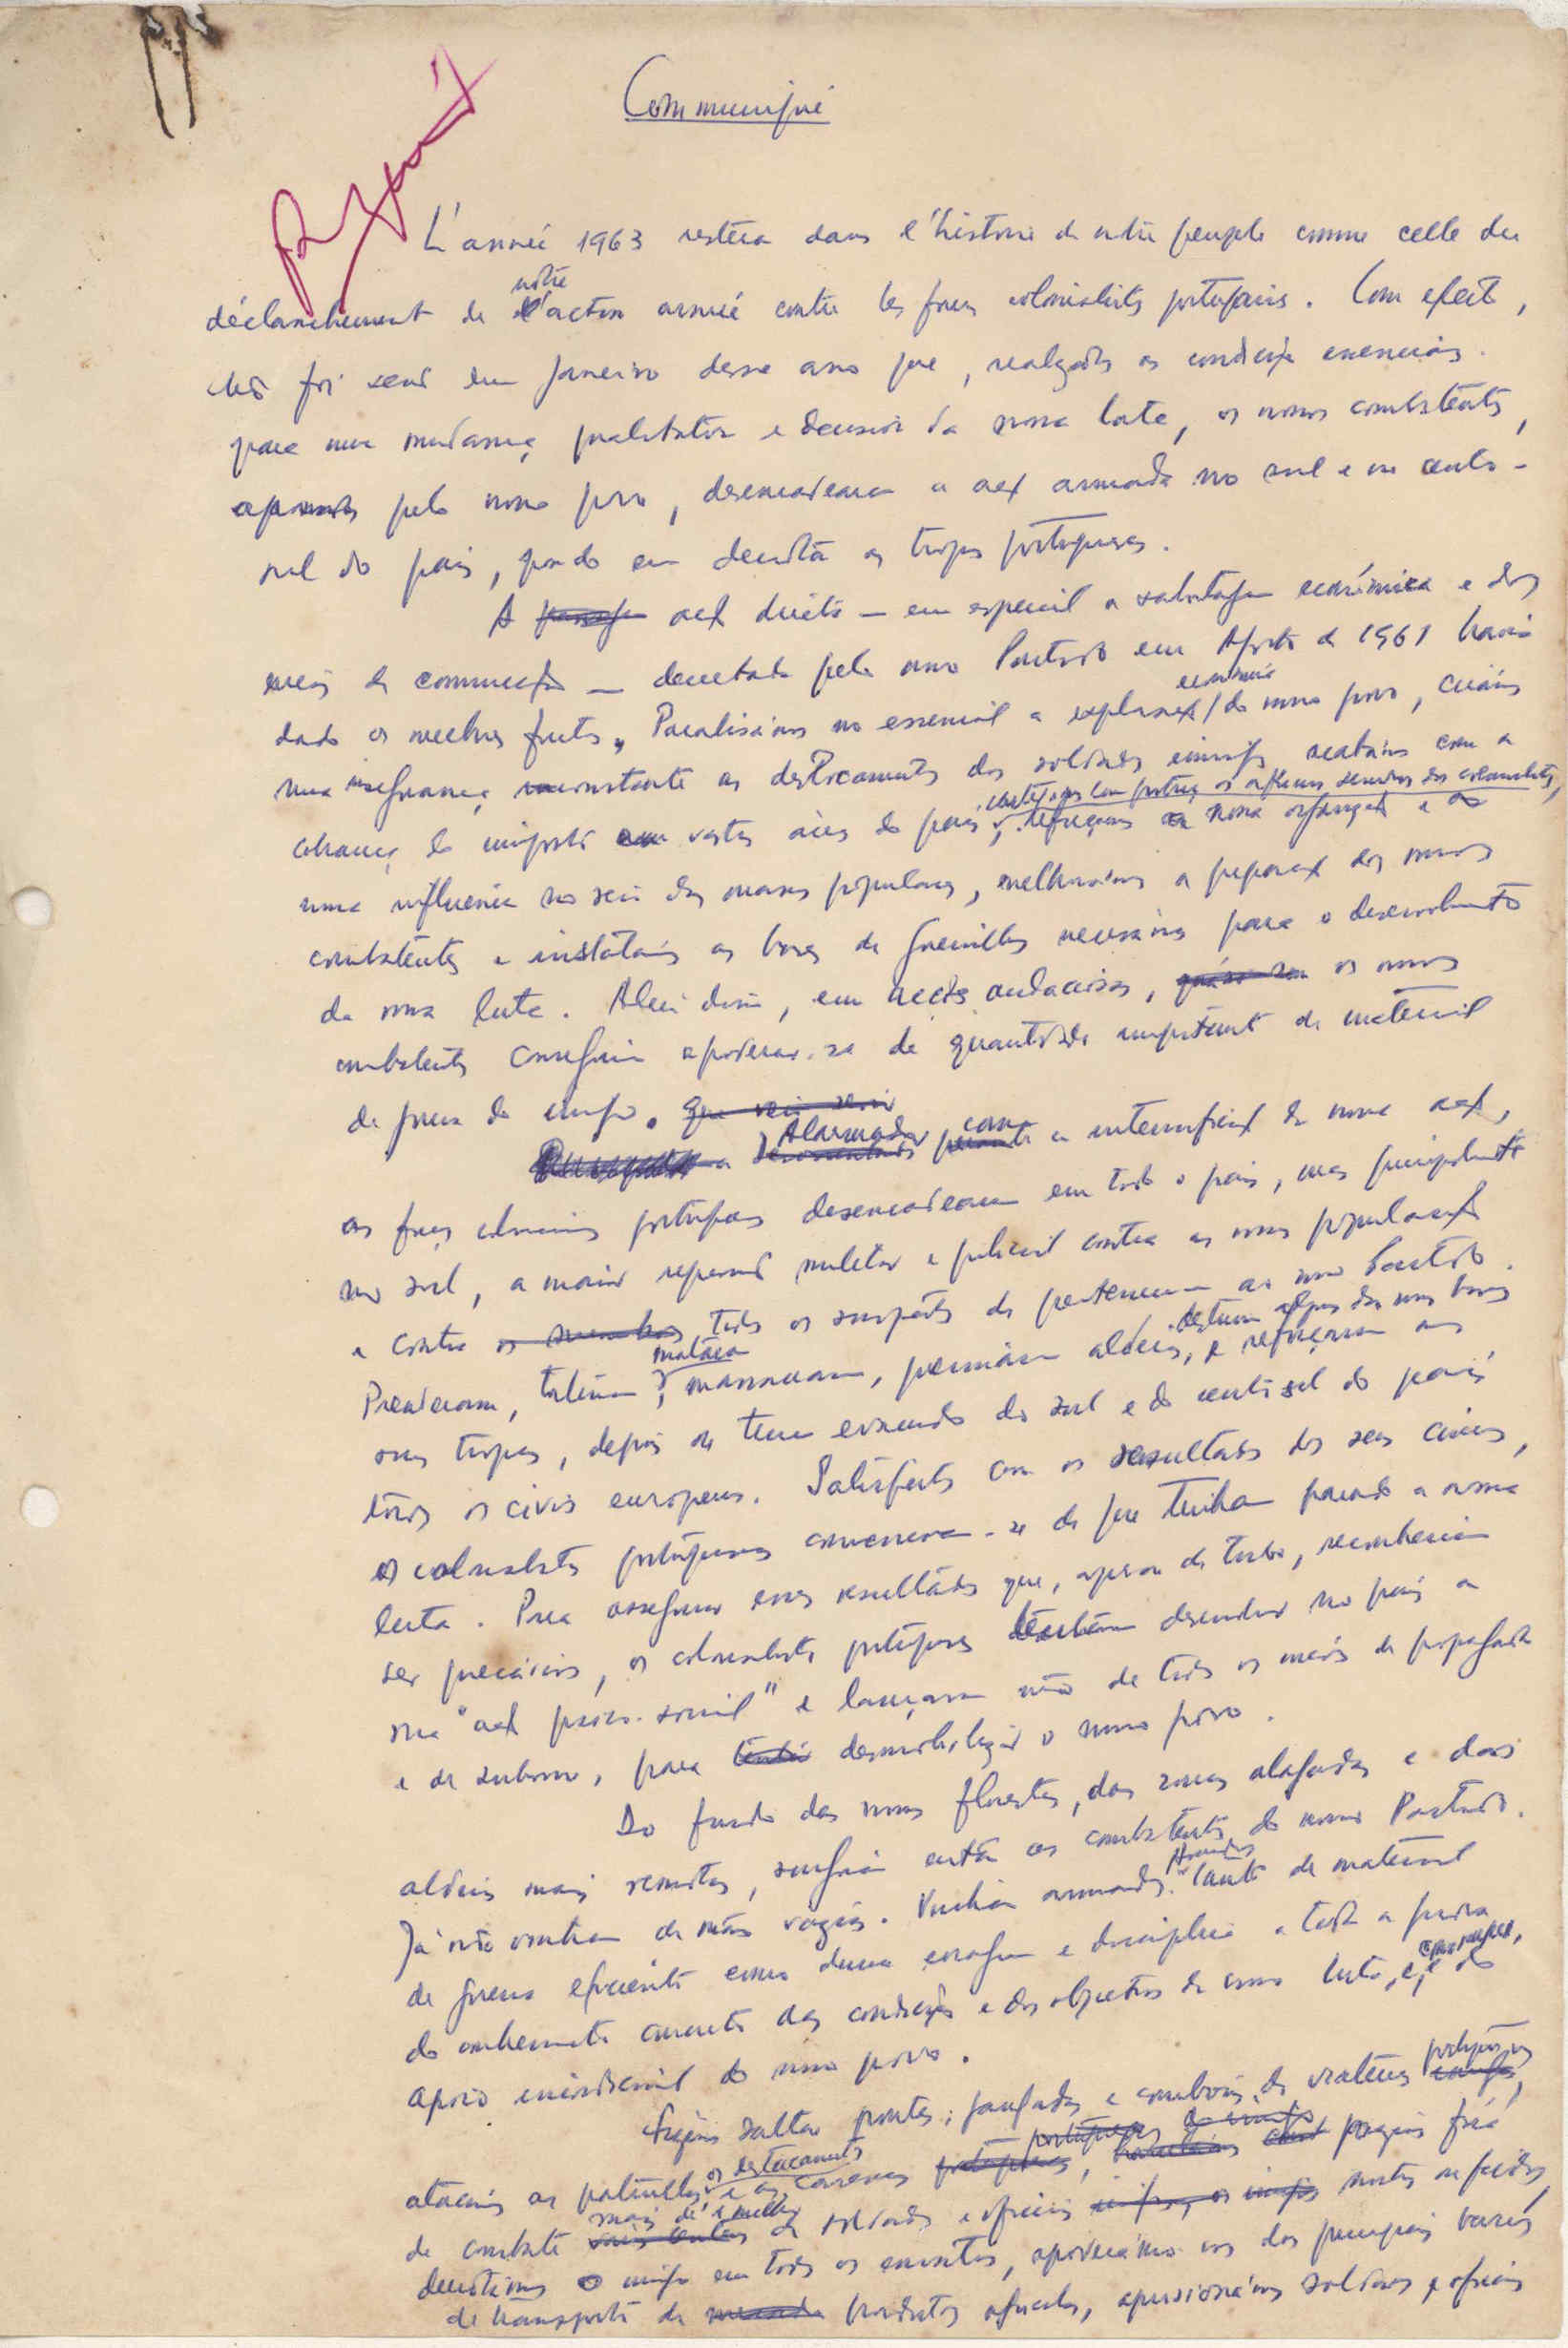 Communiqué
L'année 1963 restera dans l'histoire de notre peuple comme celle du
déclanchement de notre action armée contre les forces colonialistes portugais. Com efeito,
não foi senão em Janeiro desse ano que, realizadas as condições essenciais
para uma mudança qualitativa e decisiva da nossa luta, os nossos combatentes,
apoiados pelo nosso povo, desencadearam a acção armada no sul e no centro-
sul do país, pondo em derrota as tropas portuguesas.
A acção directa — em especial a sabotagem económica e dos
meios de comunicação — decretada pelo nosso Partido em Agosto de 1961 havia
dado os melhores frutos. Paralisámos no essencial a exploração económica do nosso povo, criámos
uma insegurança constante as deslocamentos dos soldados inimigos, acabámos com a
cobrança do imposto em vastas áreas do país, reforçámos a nossa organização e a
nossa influência no seio das massas populares, melhorámos a preparação dos nossos
combatentes e instalámos as bases de guerrilhas necessárias para o desenvolvimento
da nossa luta. Além disso, em acções audaciosas, os nossos
combatentes conseguiram apoderar-se de quantidade importante de material
de guerra do inimigo.
Alarmados com a intensificação da nossa acção,
as forças coloniais portuguesas desencadearam em todo o país, mas principalmente
no sul, a maior repressão militar e policial contra as nossas populações
e contra todos os suspeitos de pertencerem ao nosso Partido.
Prenderam, mataram, massacraram, queimaram aldeias, destruiram algumas das nossas bases e reforçaram as
suas tropas, depois de terem evacuado do sul e do centro sul do país
todos os civis europeus. Satisfeitos com os resultados dos seus crimes,
os colonialistas portugueses convenceram-se de que tinham parado a nossa
luta. Para assegurar esses resultados que, apesar de tudo, reconheciam
ser precários, os colonialistas portugueses desenvolver no país a
sua "acção psico-social" e lançaram mão de todos os meios de propaganda
e de suborno, para desmobilizar o nosso povo.
Do fundo das nossas florestas, das zonas alagadas e das
aldeias mais remotas, surgiram então os combatentes do nosso Partido.
Já não vinham de mãos vazias. Vinham armados. Armados tanto de material
de guerra eficiente como duma coragem e disciplina a toda a prova
do conhecimento concreto das condições e dos objectivos da nossa luta, e do
apoio incondicional do nosso povo.
Fizemos saltar pontes, jangadas e comboios de viaturas portuguesas,
atacámos as patrulhas, os destacamentos e as casernas pusemos fora
de combate mais de 1 milhar de soldados e oficiais mortos ou feridos,
derrotámos o inimigo em todos os encontros, apoderámo-nos dos principais barcos
de transporte de produtos agrícolas, aprisionámos soldados e oficiais